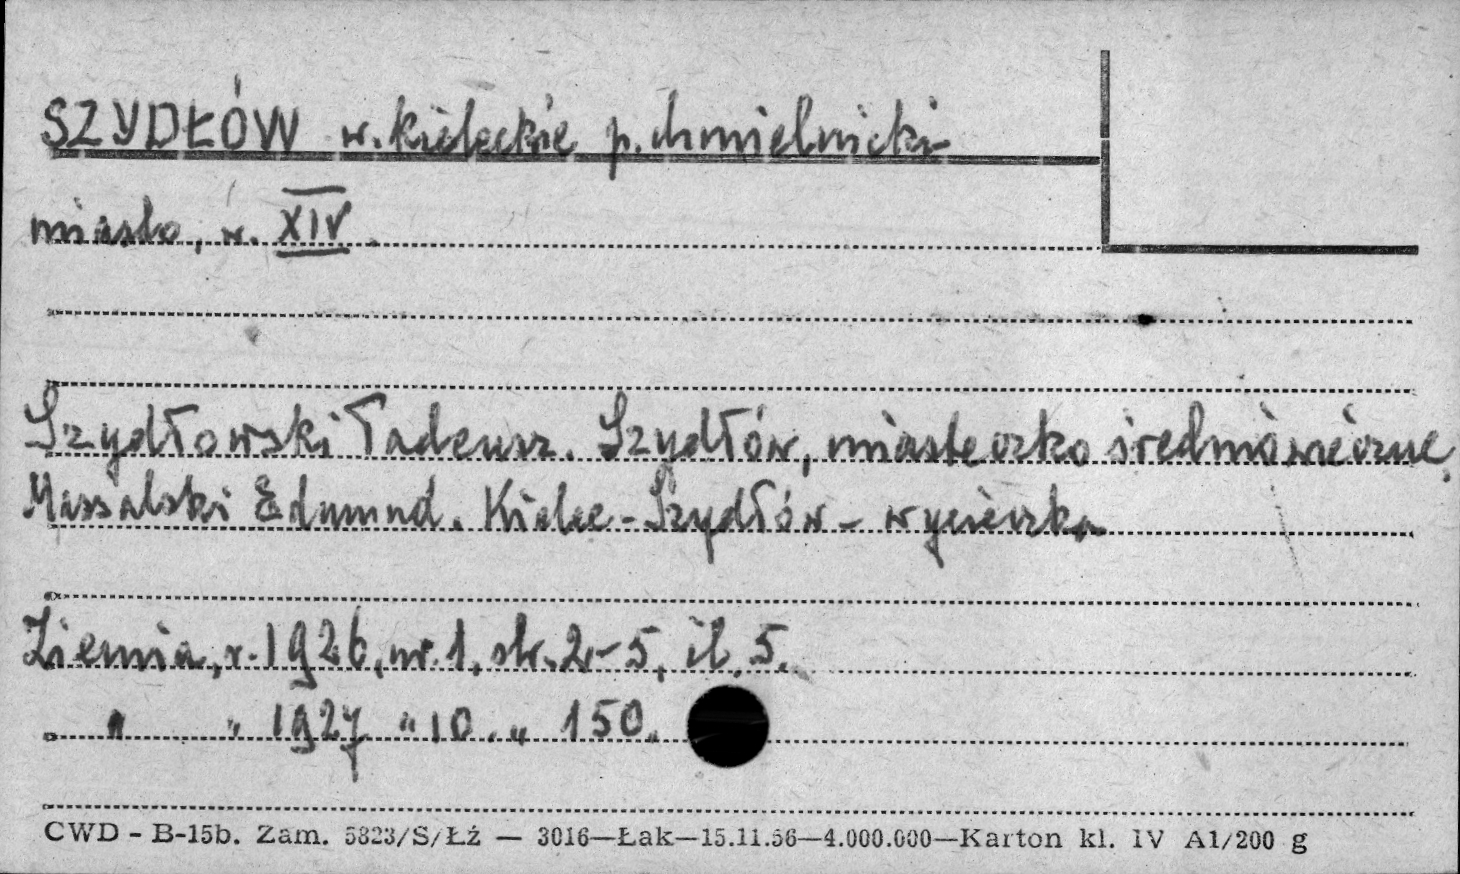 SZYDŁÓW w. kieleckie p. chmielnicki
miasto, w. XIV.
Szydłowski Tadeusz. Szydłów, miasteczko średniowieczne.
Massalski Edmund. Kielce - Szydłów - wycieczka
Ziemia, r. 1926, nr. 1, str. 2-5, il. 5.
" " 1927 " 10. " 150.
CWD - B-15b. Zam. 5823/S/Łź — 3016—Łak—15.11.56—4.000.000—Karton kl. IV A1/200 g